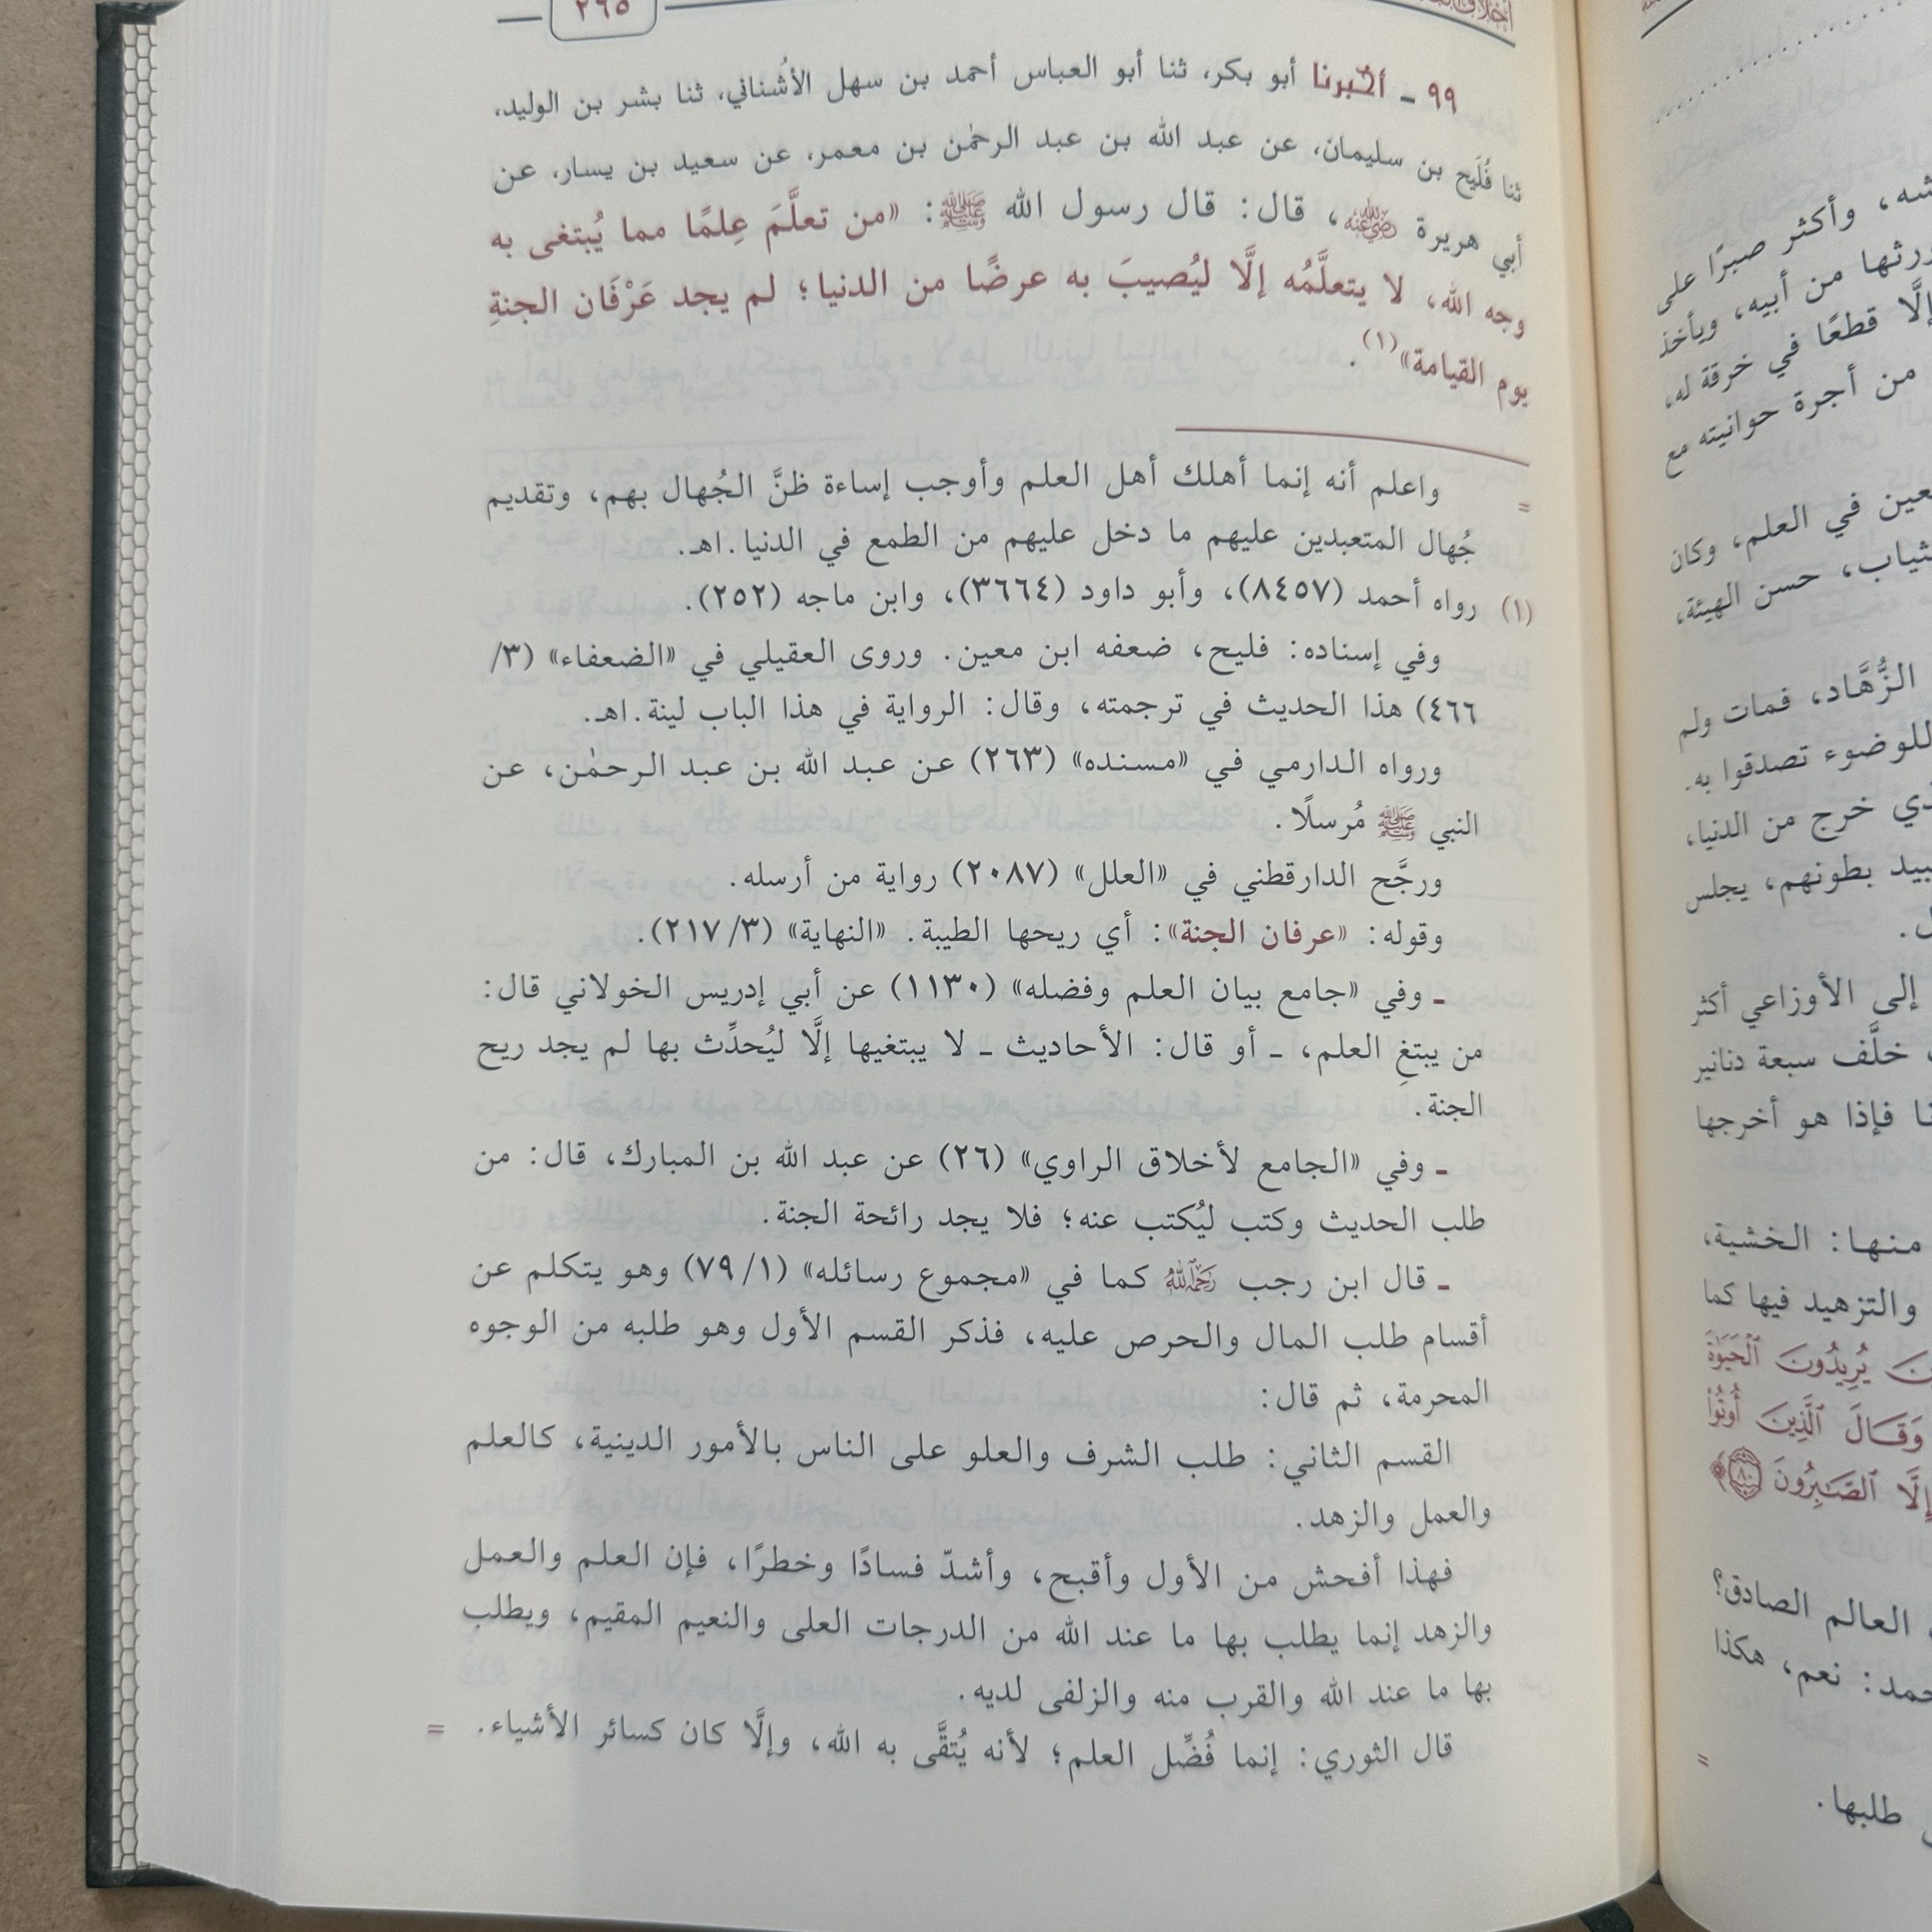 ٢٩٥
٩٩ ـ أخبرنا أبو بكر، ثنا أبو العباس أحمد بن سهل الأُشناني، ثنا بشر بن الوليد،
ثنا فُلَيح بن سليمان، عن عبد الله بن عبد الرحمٰن بن معمر، عن سعيد بن يسار، عن
أبي هريرة رضي الله عنه، قال: قال رسول الله ﷺ: «من تعلَّمَ عِلمًا مما يُبتغى به
وجه الله، لا يتعلَّمُه إلَّا ليُصيبَ به عرضًا من الدنيا؛ لم يجد عَرْفَان الجنةِ
يوم القيامة»(١).
= واعلم أنه إنما أهلك أهل العلم وأوجب إساءة ظنَّ الجُهال بهم، وتقديم
جُهال المتعبدين عليهم ما دخل عليهم من الطمع في الدنيا.اهـ.
(١) رواه أحمد (٨٤٥٧)، وأبو داود (٣٦٦٤)، وابن ماجه (٢٥٢).
وفي إسناده: فليح، ضعفه ابن معين. وروى العقيلي في «الضعفاء» (٣/
٤٦٦) هذا الحديث في ترجمته، وقال: الرواية في هذا الباب لينة.اهـ.
ورواه الدارمي في «مسنده» (٢٦٣) عن عبد الله بن عبد الرحمٰن، عن
النبي ﷺ مُرسلًا.
ورجَّح الدارقطني في «العلل» (٢٠٨٧) رواية من أرسله.
وقوله: «عرفان الجنة»: أي ريحها الطيبة. «النهاية» (٢١٧/٣).
ـ وفي «جامع بيان العلم وفضله» (١١٣٠) عن أبي إدريس الخولاني قال:
من يبتغِ العلم، ـ أو قال: الأحاديث ـ لا يبتغيها إلَّا ليُحدِّث بها لم يجد ريح
الجنة.
ـ وفي «الجامع لأخلاق الراوي» (٢٦) عن عبد الله بن المبارك، قال: من
طلب الحديث وكتب ليُكتب عنه؛ فلا يجد رائحة الجنة.
ـ قال ابن رجب رحمه الله كما في «مجموع رسائله» (٧٩/١) وهو يتكلم عن
أقسام طلب المال والحرص عليه، فذكر القسم الأول وهو طلبه من الوجوه
المحرمة، ثم قال:
القسم الثاني: طلب الشرف والعلو على الناس بالأمور الدينية، كالعلم
والعمل والزهد.
فهذا أفحش من الأول وأقبح، وأشدّ فسادًا وخطرًا، فإن العلم والعمل
والزهد إنما يطلب بها ما عند الله من الدرجات العلى والنعيم المقيم، ويطلب
بها ما عند الله والقرب منه والزلفى لديه.
قال الثوري: إنما فُضِّل العلم؛ لأنه يُتقَّى به الله، وإلَّا كان كسائر الأشياء. =
وأكثر صبرًا على
من أبيه، ويأخذ
إلَّا قطعًا في خرقة له،
من أجرة حوانيته مع
في العلم، وكان
حسن الهيئة،
الزُّهَّاد، فمات ولم
للوضوء تصدقوا به.
خرج من الدنيا،
بطونهم، يجلس
إلى الأوزاعي أكثر
خلَّف سبعة دنانير
فإذا هو أخرجها
منها: الخشية،
والتزهيد فيها كما
يُرِيدُونَ ٱلْحَيَوٰةَ
وَقَالَ ٱلَّذِينَ أُوتُوا
إِلَّا ٱلصَّٰبِرُونَ ٨٠﴾
العالم الصادق؟
نعم، هكذا
=
طلبها.